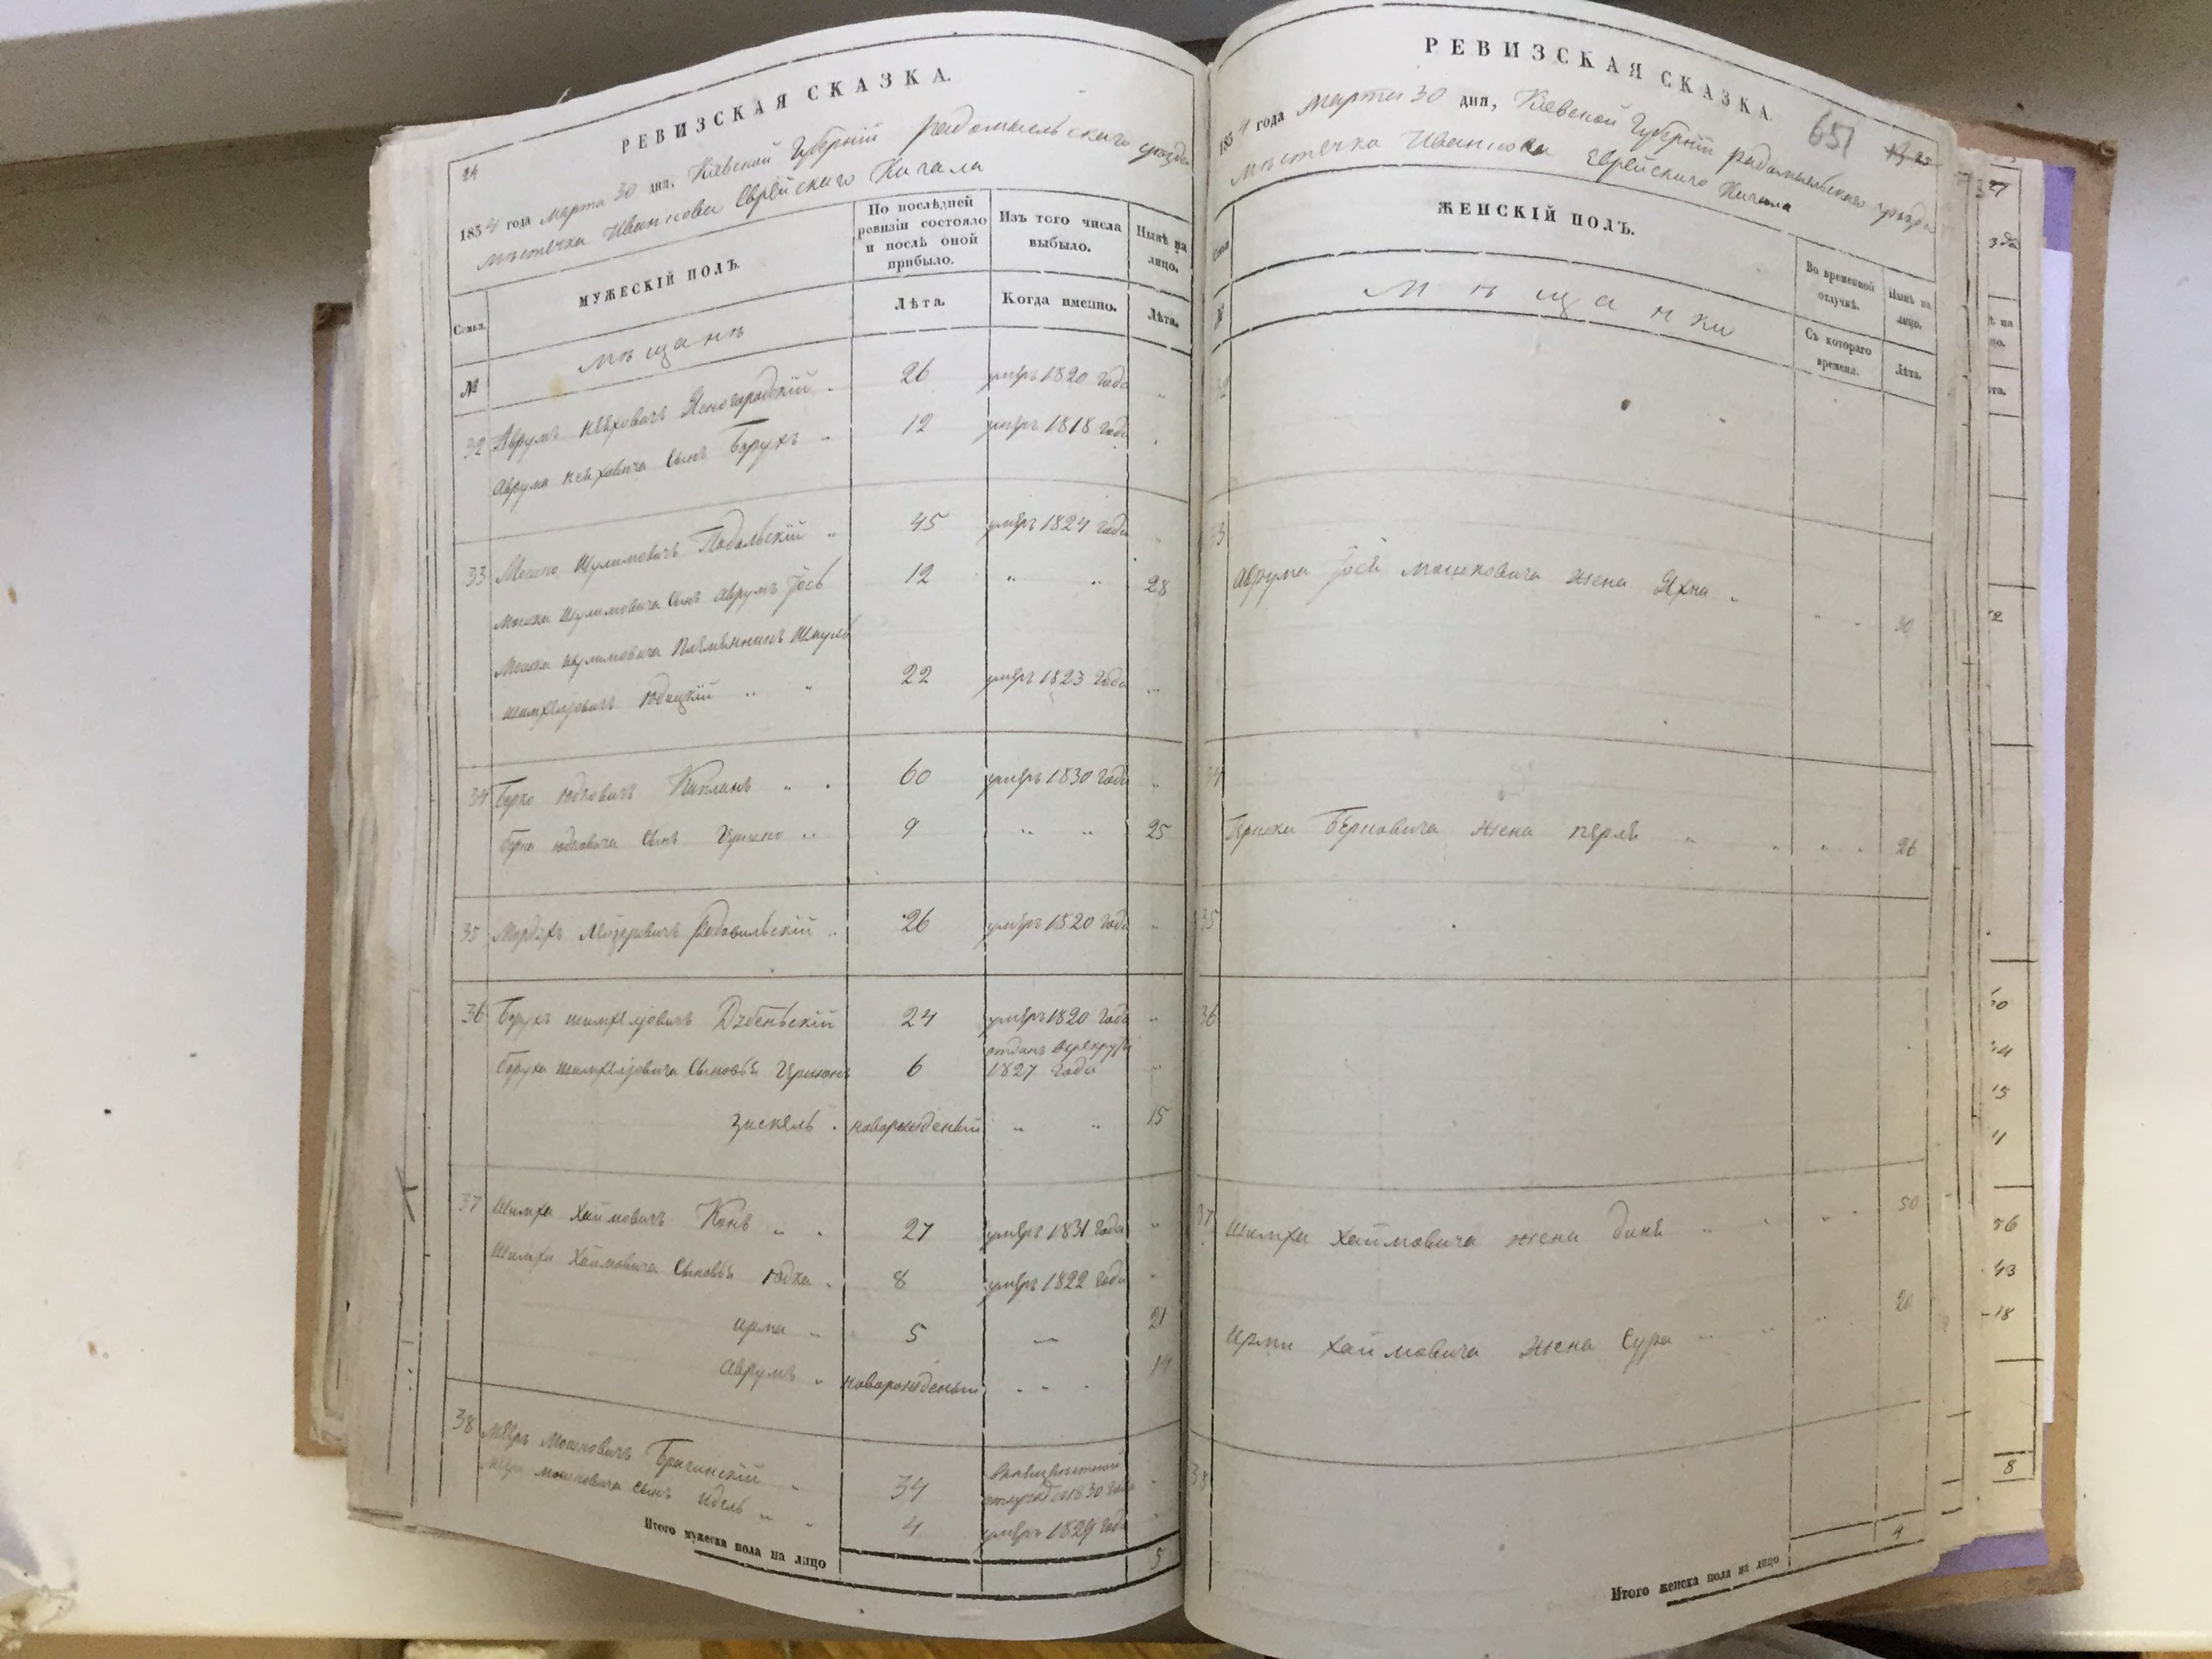 24
РЕВИЗСКАЯ СКАЗКА.
1834 года Марта 30 дня, Кіевской Губерніи Радомысльскаго уѣзда
мѣстечка Иванкова Еврейскаго Кагала
Семья.
МУЖЕСКІЙ ПОЛЪ.
По послѣдней ревизіи состояло и послѣ оной прибыло.
Изъ того числа выбыло.
Нынѣ на лицо.
№
мѣщанѣ
Лѣта.
Когда именно.
Лѣта.
32 Аврумъ Ясногородскій 26 умеръ 1820 года
Аврума сынъ Борухъ 12 умеръ 1818 года
33 Мошко Шулимовичъ Подольскій 45 умеръ 1824 года
Мошка Шулимовича сынъ Аврумъ Іось 12 " " 28
Мошка Шулимовича племянникъ Шаулъ
22 умеръ 1823 года
34 Берко Юдковичъ Капланъ 60 умеръ 1830 года
Берка Юдковича сынъ Гершко 9 " " 25
35 Мордухъ 26 умеръ 1820 года
36 Борухъ 24 умеръ 1820 года
Боруха сыновья Гершонъ 6 отданъ въ рекруты 1827 года
Зискель новорожденый " " 15
37 Шимха Хаимовичъ Конъ 27 умеръ 1831 года
Шимхи Хаимовича сыновья Юдка 8 умеръ 1822 года
Ирма 5 21
Аврумъ новорожденый 14
38 Мееръ Мошковичъ Брагинскій 34 отлучкѣ съ 1830 года
Мошковича сынъ Идель 4 умеръ 1829 года
Итого мужеска пола на лицо 5
РЕВИЗСКАЯ СКАЗКА.
651
25
1834 года Марта 30 дня, Кіевской Губерніи Радомысльскаго уѣзда
мѣстечка Иванкова Еврейскаго Кагала
Семья
ЖЕНСКІЙ ПОЛЪ.
Во временной отлучкѣ.
Нынѣ на лицо.
№
мѣщанки
Съ котораго времени.
Лѣта.
33
Аврума Іося Мошковича жена Яхна 30
34
Гершка Берковича жена Перля 26
35
36
37 Шимхи Хаимовича жена Даня 50
Ирми Хаимовича жена Сура 20
38
Итого женска пола на лицо 4